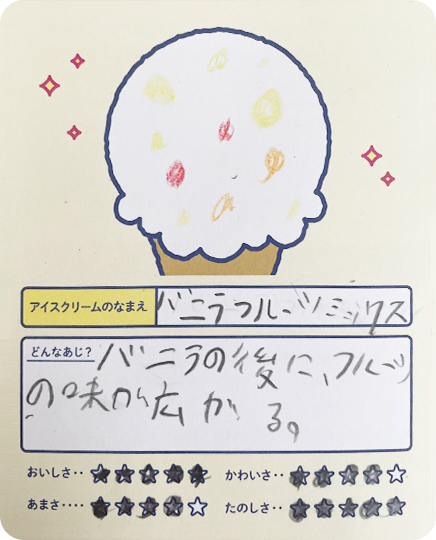 アイスクリームのなまえ
バニラフルーツミックス
どんなあじ?
バニラの後に、フルーツ
の味が広がる。
おいしさ‥ ★★★★★ かわいさ‥ ★★★★☆
あまさ‥‥ ★★★★☆ たのしさ‥ ★★★★★